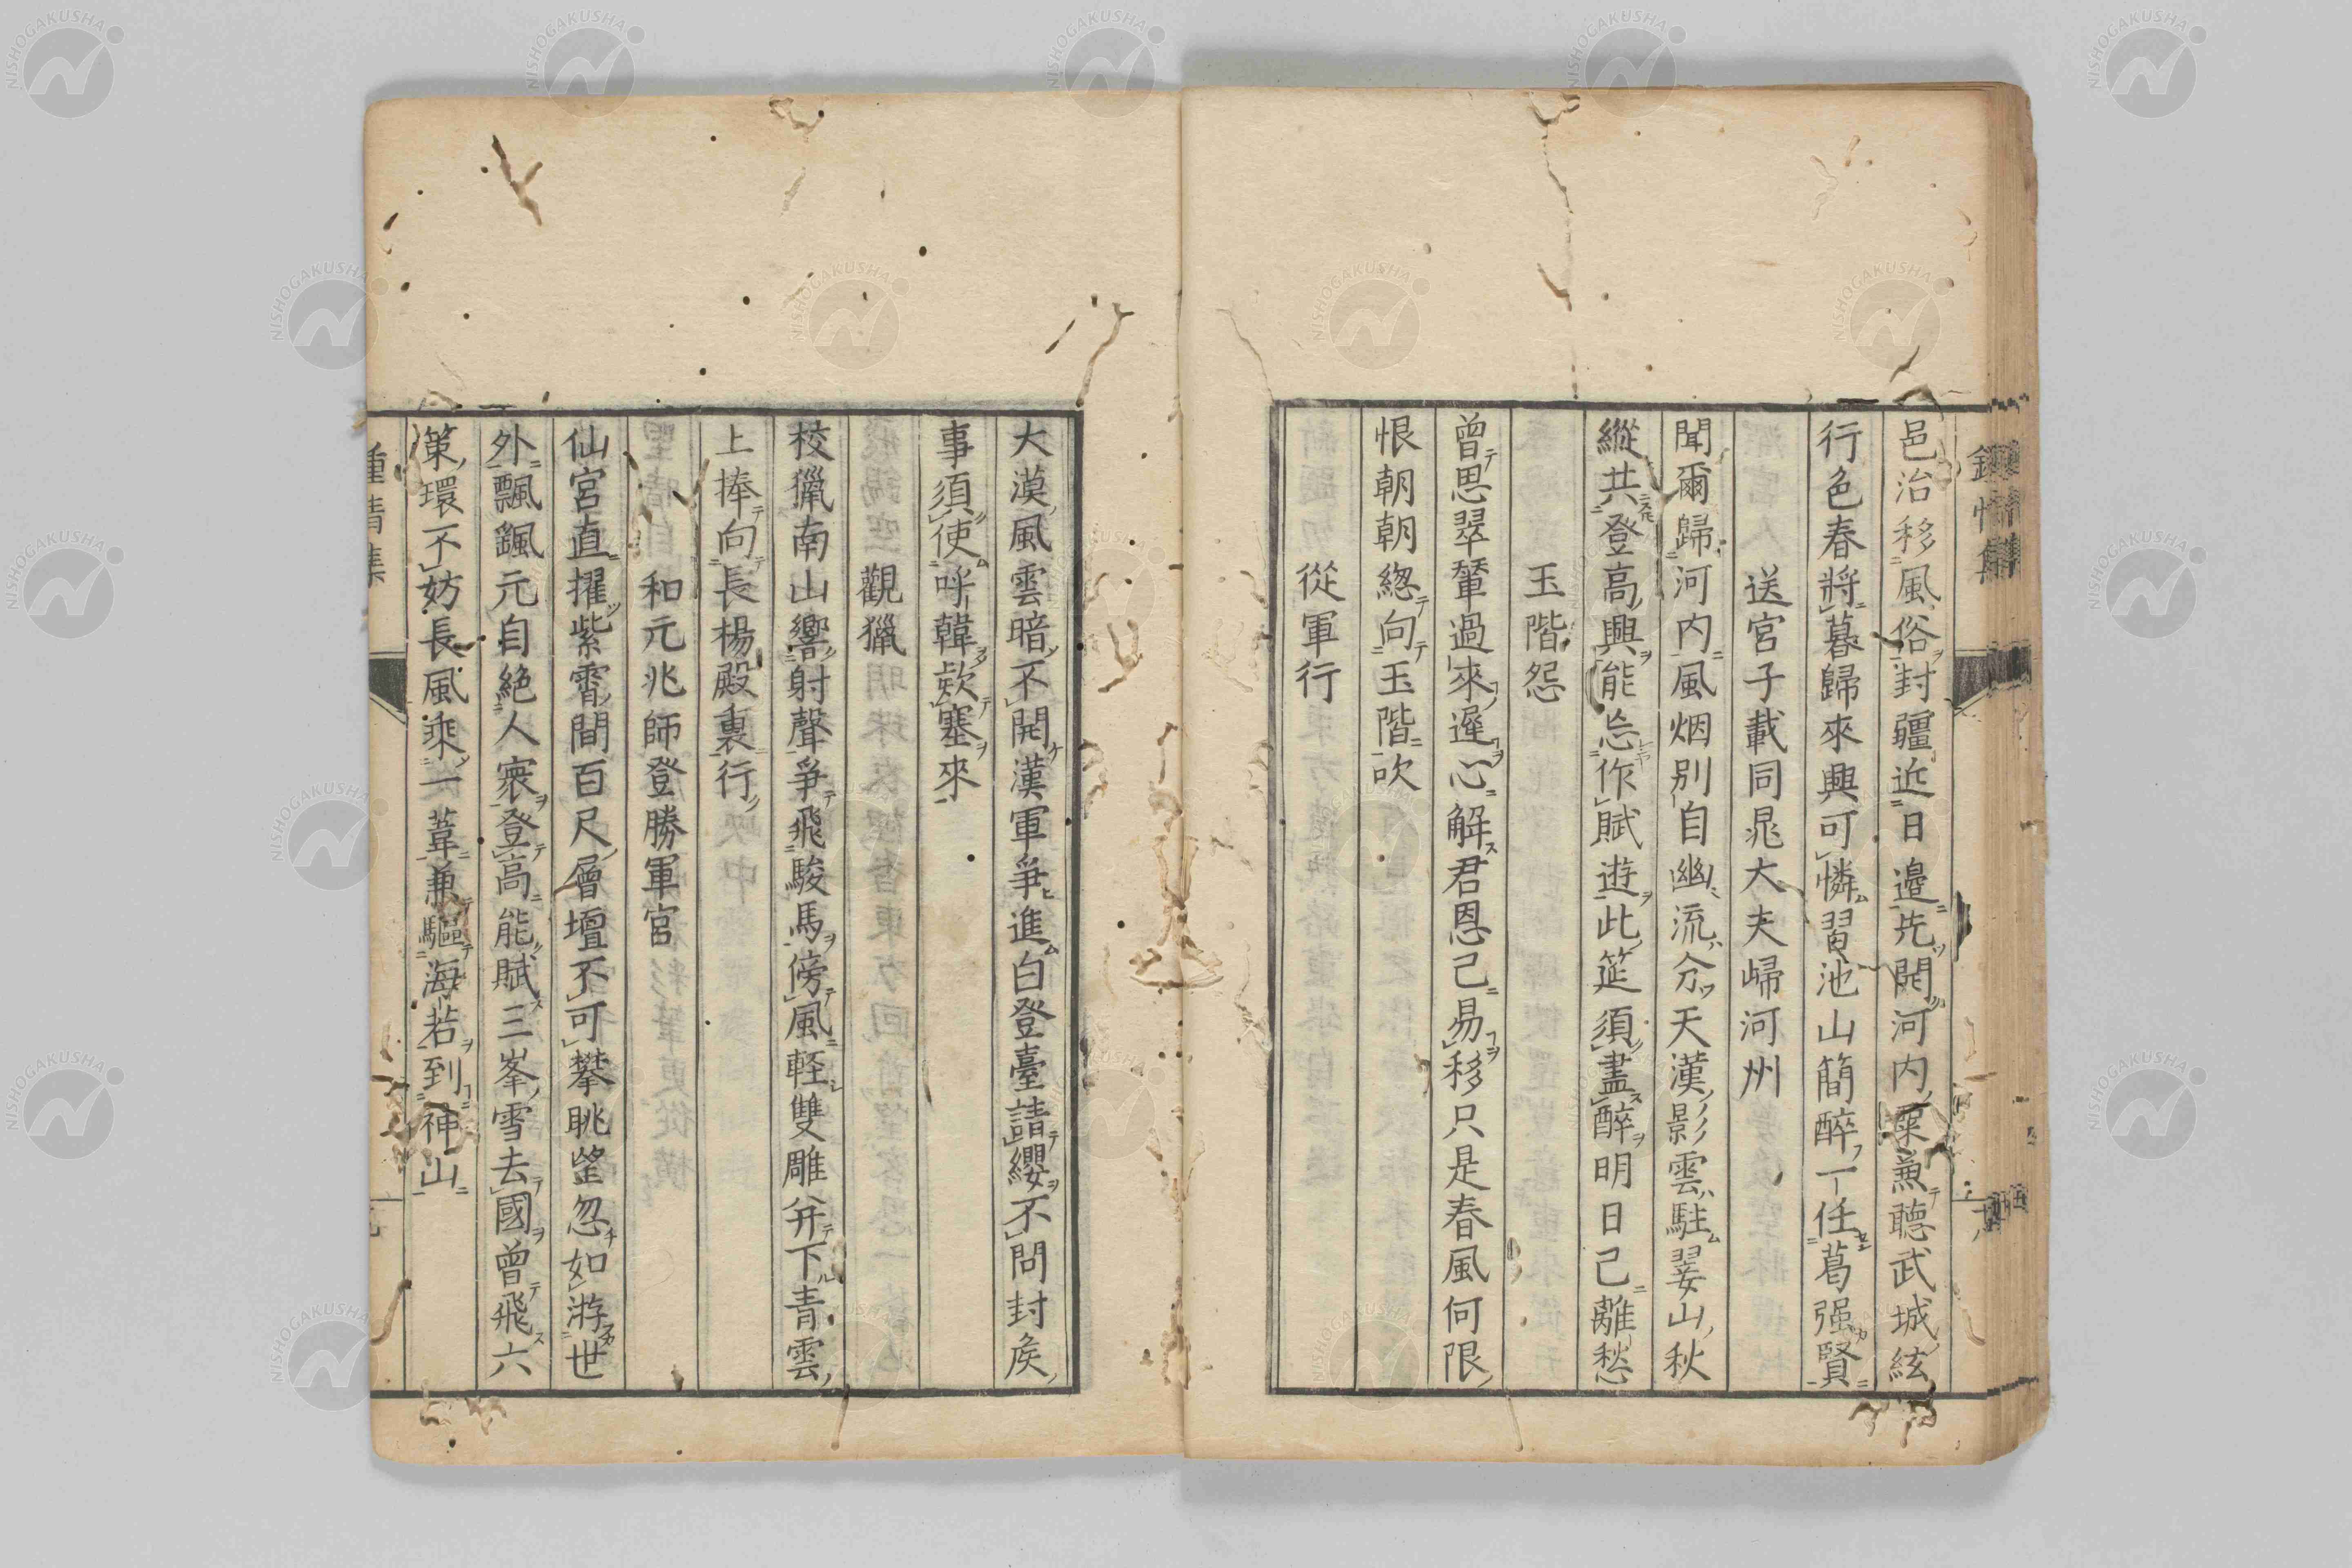 邑治移風俗封疆近日邊先開河内粟兼聴武城絃
行色春將暮歸來興可憐習池山簡醉一任葛强賢
送宮子載同晁大夫歸河州
聞爾歸河内風烟別自幽流分天漢影雲駐翠山秋
縱共登高興能忘作賦遊此筵須盡醉明日己離愁
玉階怨
曾思翠輦過來遲心解君恩己易移只是春風何限
恨朝朝緫向玉階吹
從軍行
大漠風雲暗不開漢軍爭進白登臺請纓不問封侯
事須使呼韓欵塞來
觀獵
校獵南山響射聲爭飛駿馬傍風軽雙雕并下青雲
上捧向長楊殿裏行
和元兆師登勝軍宮
仙宮直擢紫霄間百尺層壇不可攀眺望忽如游世
外飄颻元自絶人寰登高能賦三峯雪去國曾飛六
策環不妨長風乘一葦兼驅海若到神山
鍾情集
NISHOGAKUSHA